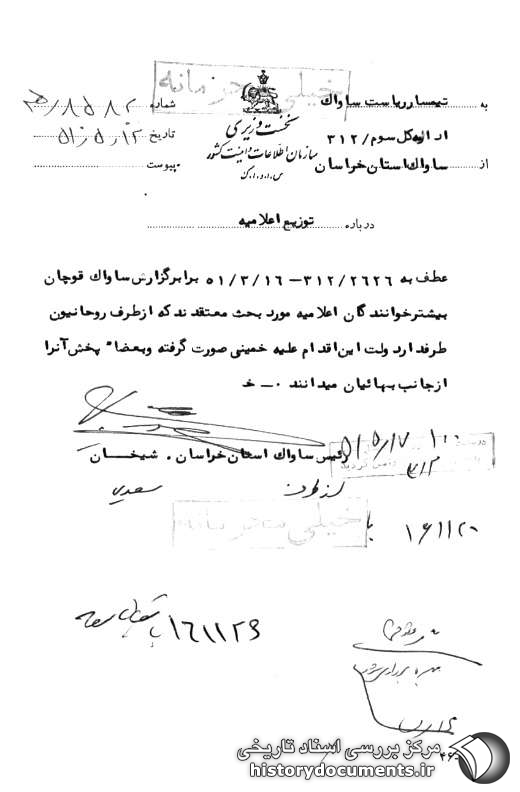 خیلی محرمانه
به تیمسار ریاست ساواك
شماره ۸۵۸۲/ﻫ
نخست وزیری
اداره کل سوم/ ۳۱۲
تاریخ ۵۱/۵/۲
سازمان اطلاعات و امنیت کشور
از ساواك استان خراسان
پیوست
س.ا.و.ا.ک
درباره توزیع اعلامیه
عطف به ۳۱۲/۲۶۲۶ – ۵۱/۳/۱۶ برابر گزارش ساواك قوچان
بیشتر خوانندگان اعلامیه مورد بحث معتقدند که از طرف روحانیون
طرفدار دولت این اقدام علیه خمینی صورت گرفته و بعضا" پخش آنرا
از جانب بهائیان میدانند ۰ – خ
رئیس ساواك استان خراسان . شیخان
از طرف سعدی
۵۱/۵/۱۷
۳۱۲
خیلی محرمانه
۱۶۱۱۲۰
۱۶۱۱۲۶
مرکز بررسی اسناد تاریخی
historydocuments.ir